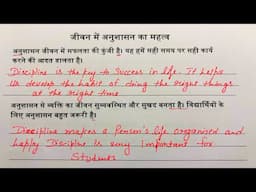 जीवन में अनुशासन का महत्व
अनुशासन जीवन में सफलता की कुंजी है। यह हमें सही समय पर सही कार्य
करने की आदत डालता है।
Discipline is the key to success in life. It helps
us develop the habit of doing the right things
at the right time
अनुशासन से व्यक्ति का जीवन सुव्यवस्थित और सुखद बनता है। विद्यार्थियों के
लिए अनुशासन बहुत जरूरी है।
Discipline makes a Person's life organised and
happy Discipline is very Important for
Students